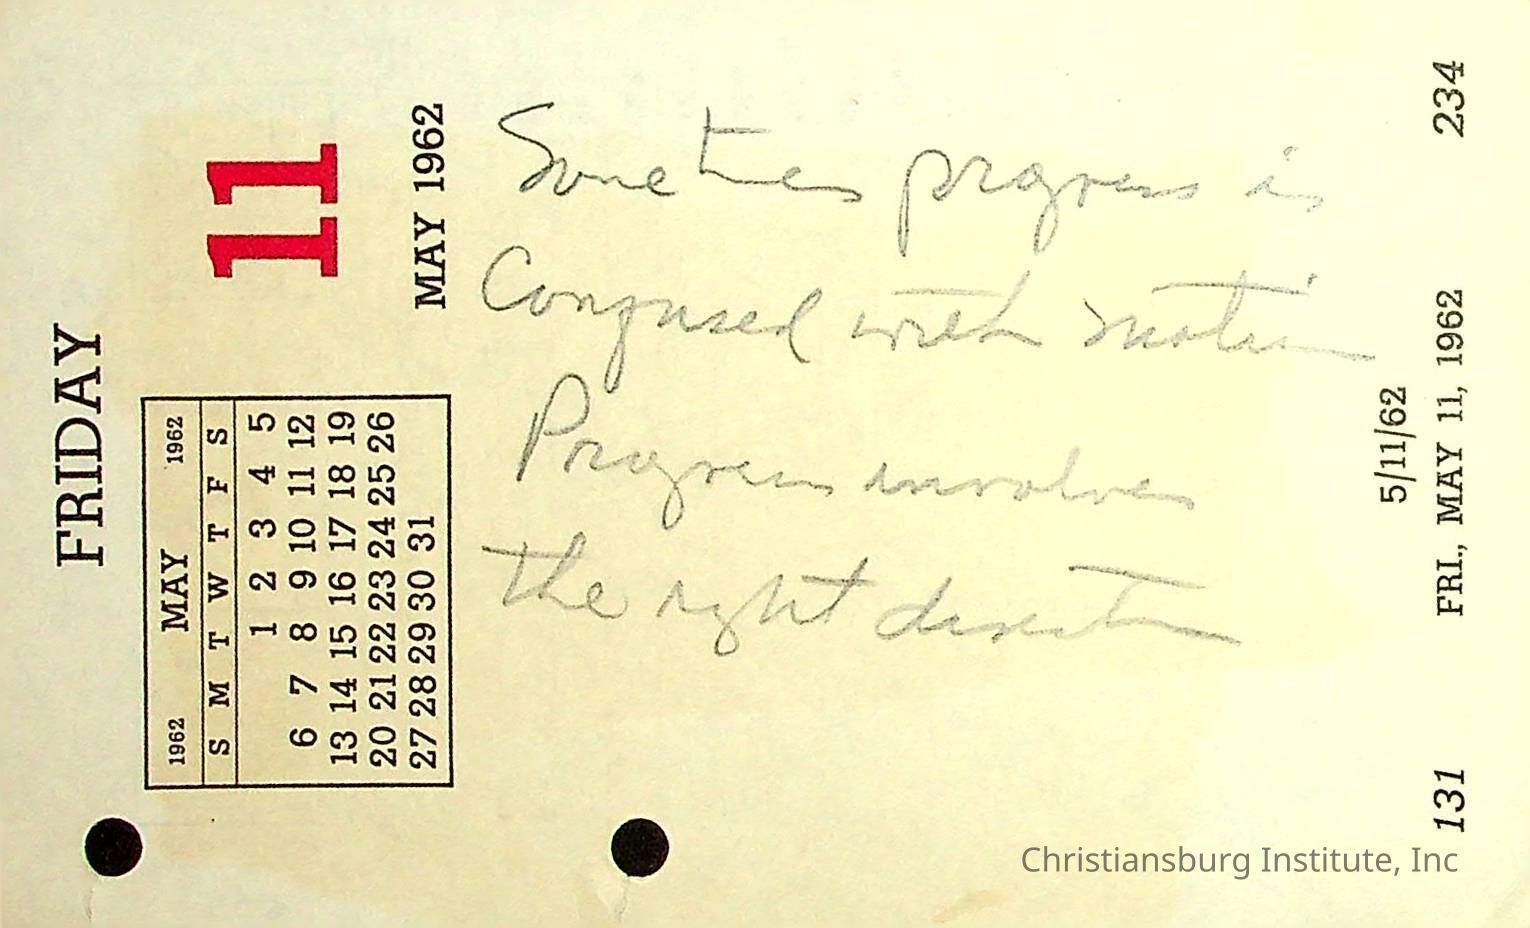 FRIDAY
11
MAY 1962
1962 MAY 1962
S M T W T F S
1 2 3 4 5
6 7 8 9 10 11 12
13 14 15 16 17 18 19
20 21 22 23 24 25 26
27 28 29 30 31
Sometimes progress is
Confused with motion
Progress involves
the right direction
5/11/62
131 FRI., MAY 11, 1962 234
Christiansburg Institute, Inc